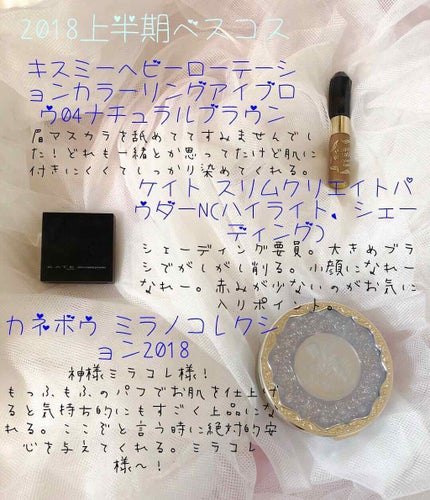 2018上半期ベスコス
キスミーヘビーローテーシ
ョンカラーリングアイブロ
ウ04ナチュラルブラウン
眉マスカラを舐めててすみませんでし
た!どれも一緒とか思ってたけど肌に
付きにくくてしっかり染めてくれる。
ケイト スリムクリエイトパ
ウダーNC(ハイライト、シェー
ディング)
シェーディング要員。大きめブラ
シでがしがし削る。小顔になれー
なれー。赤みが少ないのがお気に
入りポイント。
KATE
カネボウ ミラノコレクシ
ョン2018
神様ミラコレ様!
もっふもふのパフでお肌を仕上げ
ると気持ち的にもすごく上品にな
れる。ここぞと言う時に絶対的安
心を与えてくれる。ミラコレ
様〜!